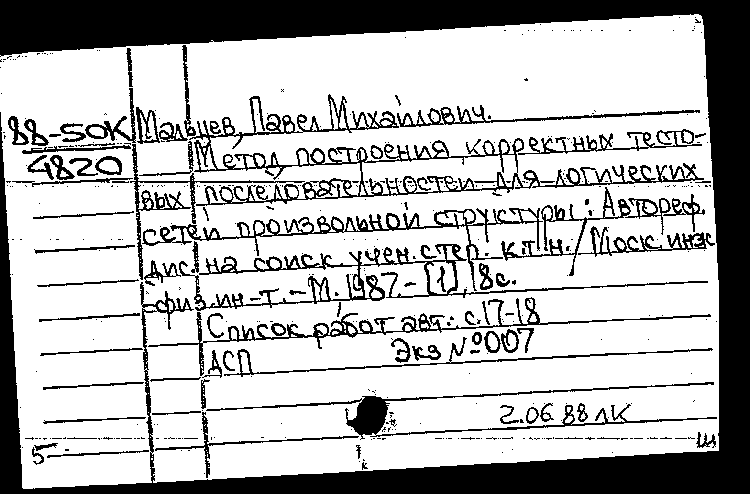 88-50К Мальцев, Павел Михайлович.
4820 Метод построения корректных тесто-
вых последовательностей для логических
сетей произвольной структуры: Автореф.
дис. на соиск. учен. степ. к.т.н. / Моск. инж.
-физ. ин-т. - М. 1987. - [1], 18 с.
Список работ авт.: с. 17-18
ДСП Экз №007
2.06.88 ЛК
5- Ш